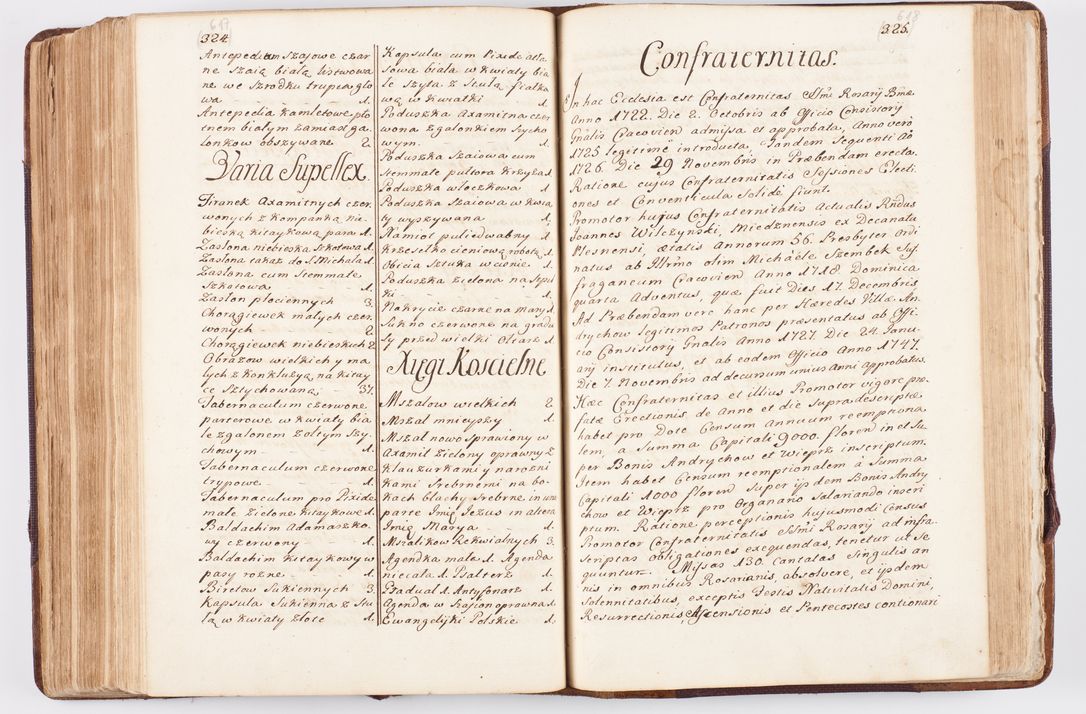 617
324.
Antepedium szajowe czar
ne szaią białą listwowa
ne we szrodku trupia glo
wa 1.
Antepedia kamletowe plo
tnem białym zamiast ga
lonkow obszywane 2
Varia Supellex.
Firanek Axamitnych czer
wonych z kompanką nie-
bieską kitaykową para 1.
Zasłona niebieska szkotowa 1.
Zasłona takaż do S. Michała 1.
Zasłona cum Stemmate
szkotowa 1.
Zasłon płociennych 3.
Chorągiewek małych czer
wonych 2.
Chorągiewek niebieskich 2
Obrazow wielkich y ma
łych z Konkluzyą na kitay
ce sztychowaną 37.
Tabernaculum czerwone
parterowe w kwiaty bia
łe z galonem żołtym szy-
chowym 1.
Tabernaculum czerwone
trypowe 1.
Tabernaculum pro Pixide
małe zielone kitaykowe 1.
Baldachim Adamaszko.
wy czerwony 1.
Baldachim kitaykowy w
pasy rożne 1.
Biretow Sukiennych 3.
Kapsula Sukienna z Stu
łą w kwiaty złote 1.
Kapsula cum Pixide atła
sowa biała w kwiaty bia
łe szyta z Stułą fiałko
wą w kwiatki 1.
Poduszka Axamitna czer
wona z galonkiem szycho
wym 1.
Poduszka Szaiowa cum
Stemmate pultora Krzyża 1.
Poduszka włoczkowa 1
Poduszka Szaiowa w kwia
ty wyszywana 1.
Namiot puliedwabny 1.
Krzesełko cieniową robotą 1.
Obicia Sztuka w cienie 1.
Poduszka zielona na Stpul
ki 1.
Nakrycie czarne na mary 1.
Sukno czerwone na gradu
sy przed wielki Ołtarz 1.
Xięgi Koscielne
Mszałow wielkich 2
Mszał mnieyszy 1.
Mszał nowo sprawiony w
Axamit zielony oprawny z
klauzurkami y narożni
kami Srebrnemi na bo-
kach blachy Srebrne in una
parte Imię Jezus in altera
Imię Marya 1.
Mszalikow Rekwialnych 3.
Agendka mała 1. Agenda
niecała 1. Psałterz 1.
Gradual 1. Antyfonarz 1.
Agenda w Szajon oprawna 1.
Ewangelyki Polskie 1.
618
325.
Confraternitas.
In hac Ecclesia est Confraternitas SSmi Rosarij Bmæ
Anno 1722. Die 2. Octobris ab Officio Consistorij
Gnalis Cracovien admissa et approbata, Anno verò
1725 legitimè introducta, Tandem sequenti Ao
1726. Die 29 Novembris in Præbendam erecta.
Ratione cujus Confraternitatis Sessiones Electi
ones et Conventicula solidè fiunt.
Promotor hujus Confraternitatis Actualis Rndus
Joannes Wilczynski, Miedznensis ex Decanatu
Plesnensi, ætatis Annorum 56. Presbyter Ordi
natus ab Illrmo olim Michaële Szembek Suf
fraganeum Cracovien Anno 1718 Dominica
quarta Adventus, quæ fuit Dies 17. Decembris,
Ad Præbendam verò hanc per Hæredes Villæ An
drychow legitimos Patronos præsentatus ab Offi
cio Consistorij Gnalis Anno 1727. Die 24. Janu
arij institutus, et ab eodem Officio Anno 1747.
Die 7. Novembris ad decursum unius Anni approbatus.
Hæc Confraternitas et illius Promotor vigore præ
fatæ Erectionis de Anno et die supradescriptæ
habet pro Dote Censum Annuum reemptiona
lem, a Summa Capitali 9000. floren in et su
per Bonis Andrychow et Wieprz inscriptum.
Item habet Censum reemptionalem à Summa
Capitali 1000 floren super ijsdem Bonis Andry
chow et Wieprz pro Organario salariando inscri
ptum. Ratione perceptionis hujusmodi Census
Promotor Confraternitatis SSmi Rosarij ad infra-
scriptas obligationes exequendas, tenetur ut se
quuntur. Missas 130. Cantatas singulis an
nis in omnibus Rosarianis, absolvere, et ijsdem
Solennitatibus, exceptis Festis Nativitatis Domini,
Resurrectionis, Ascensionis et Pentecostes contionari